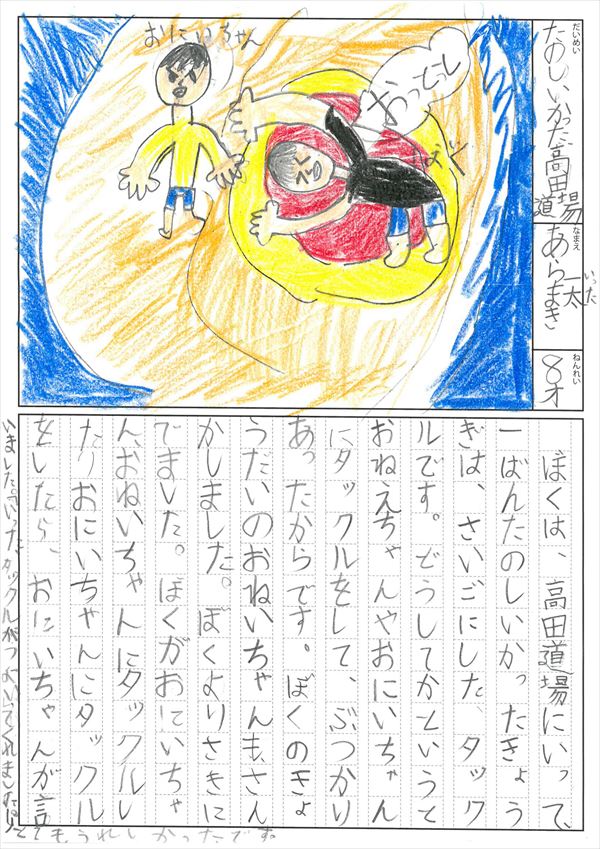 だいめい
たのしいかった高田道場
なまえ
あらまき一太
いった
ねんれい
8才
おにいちゃん
おっとっと
ぼく
ぼくは、高田道場にいって、
一ばんたのしいかったきょう
ぎは、さいごにした、タック
ルです。どうしてかというと
おねえちゃんやおにいちゃん
にタックルをして、ぶつかり
あったからです。ぼくのきょ
うだいのおねいちゃんも、さん
かしました。ぼくよりさきに
でました。ぼくがおにいちゃ
ん、おねいちゃんにタックルし
たりおにいちゃんにタックル
をしたら、おにいちゃんが言
いました。「いったタックルがつよいてくれました。」
とてもうれしかったです。